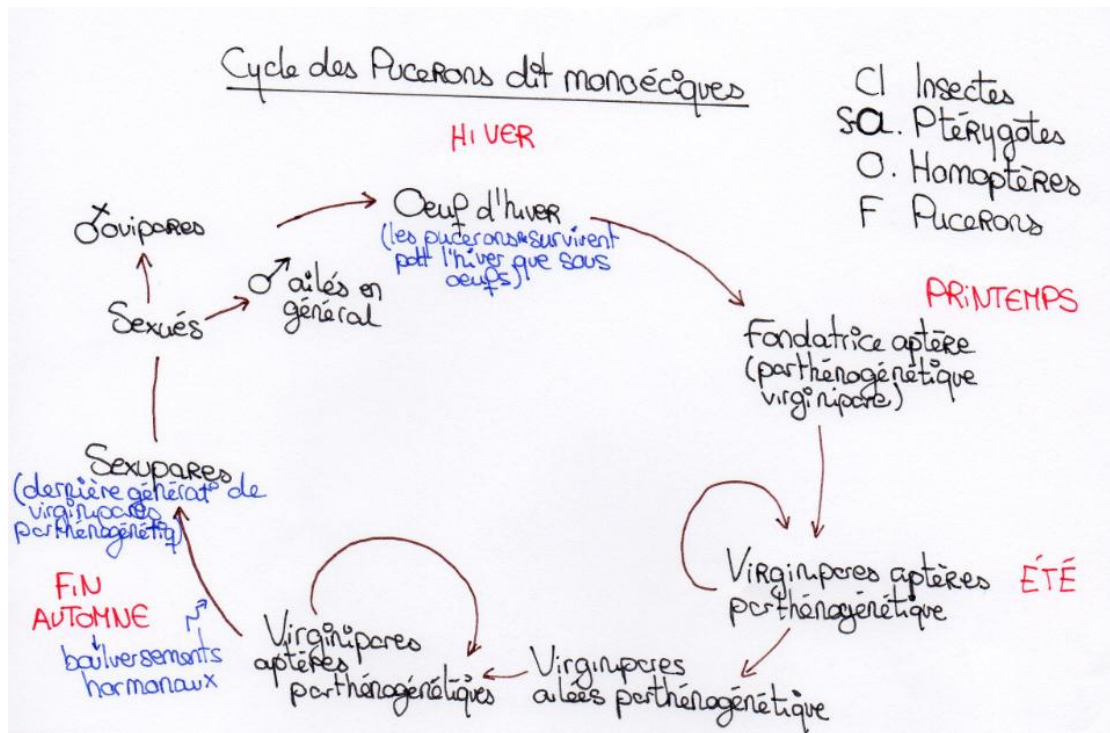 Cycle des Pucerons dit monoéciques
Cl Insectes
S-Cl. Ptérygotes
O. Homoptères
F Pucerons
HIVER
Oeuf d'hiver
(les pucerons survivent
pdtt l'hiver que sous
oeufs)
PRINTEMPS
Fondatrice aptère
(parthénogénétique
virginipare)
ÉTÉ
Virginipares aptères
parthénogénétique
Virginipares
ailées parthénogénétique
Virginipares
aptères
parthénogénétiques
FIN
AUTOMNE
boulversements
hormonaux
Sexupares
(dernière générat° de
virginipares
parthénogénétiq)
Sexués
ovipares
♂ ailés en
général